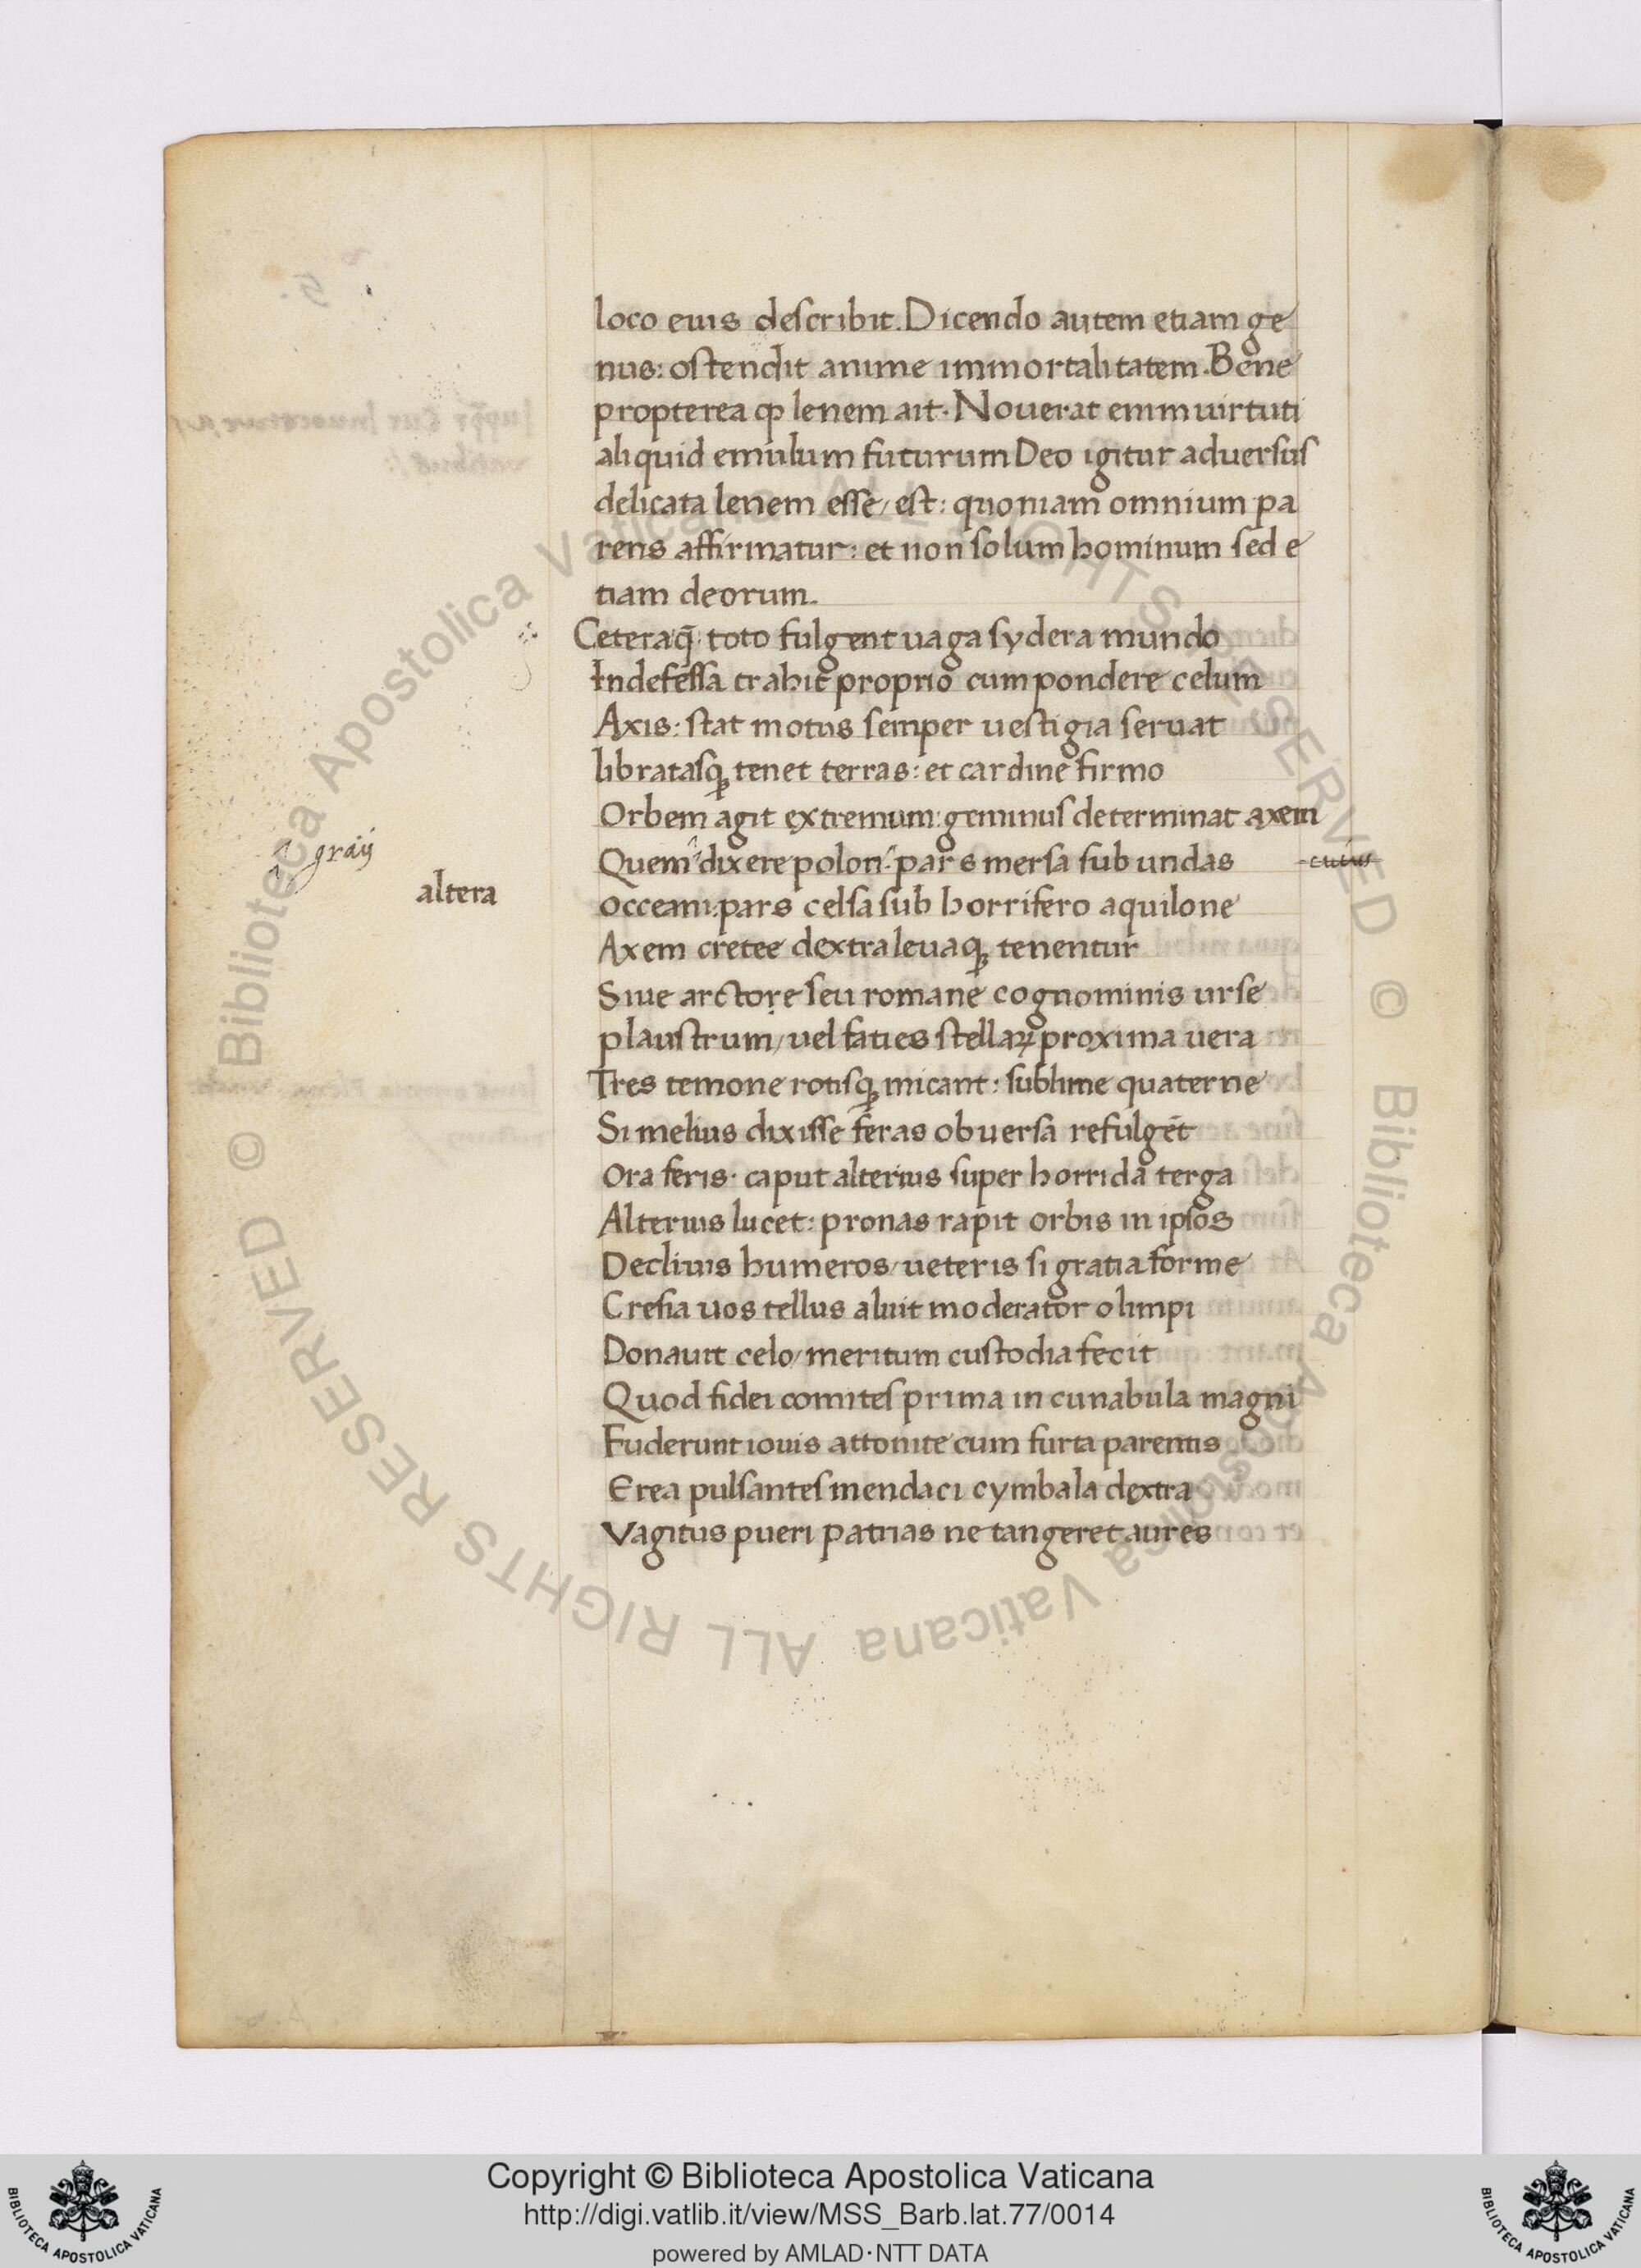 loco eius describit. Dicendo autem etiam ge
nus: ostendit anime immortalitatem. Bene
propterea ꝙ lenem ait. Nouerat enim uirtuti
aliquid emulum futurum Deo igitur aduersus
delicata lenem esse/ est: quoniam omnium pa
rens affirmatur: et non solum hominum sed e
tiam deorum.
Ceteraq̄: toto fulgent uaga sydera mundo
Indefessa trahit proprio cum pondere celum
Axis: stat motus semper uestigia seruat
libratasqꝫ tenet terras: et cardine firmo
Orbem agit extremum: geminus determinat axem
graÿ
Quem dixere polon: pars mersa sub undas
cuius
altera
occeani: pars celsa sub horrifero aquilone
Axem cretee dextra leuaqꝫ tenentur
Siue arctore seu romane cognominis urse
plaustrum/ uel faties stellaꝝ proxima uera
Tres temone rotisqꝫ micant: sublime quaterne
Si melius dixisse feras obuersa refulgēt
Ora feris. caput alterius super horrida terga
Alterius lucet: pronas rapit orbis in ipsos
Decliuis humeros/ ueteris si gratia forme
Cresia uos tellus aluit moderator olimpi
Donauit celo/ meritum custodia fecit
Quod fidei comites prima in cunabula magni
Fuderunt iouis attonite cum furta parentis
Erea pulsantes mendaci cymbala dextra
Vagitus pueri patrias ne tangeret aures
© Biblioteca Apostolica Vaticana ALL RIGHTS RESERVED © Biblioteca Apostolica Vaticana ALL RIGHTS RESERVED
Copyright © Biblioteca Apostolica Vaticana
http://digi.vatlib.it/view/MSS_Barb.lat.77/0014
powered by AMLAD·NTT DATA
BIBLIOTECA APOSTOLICA VATICANA
BIBLIOTECA APOSTOLICA VATICANA